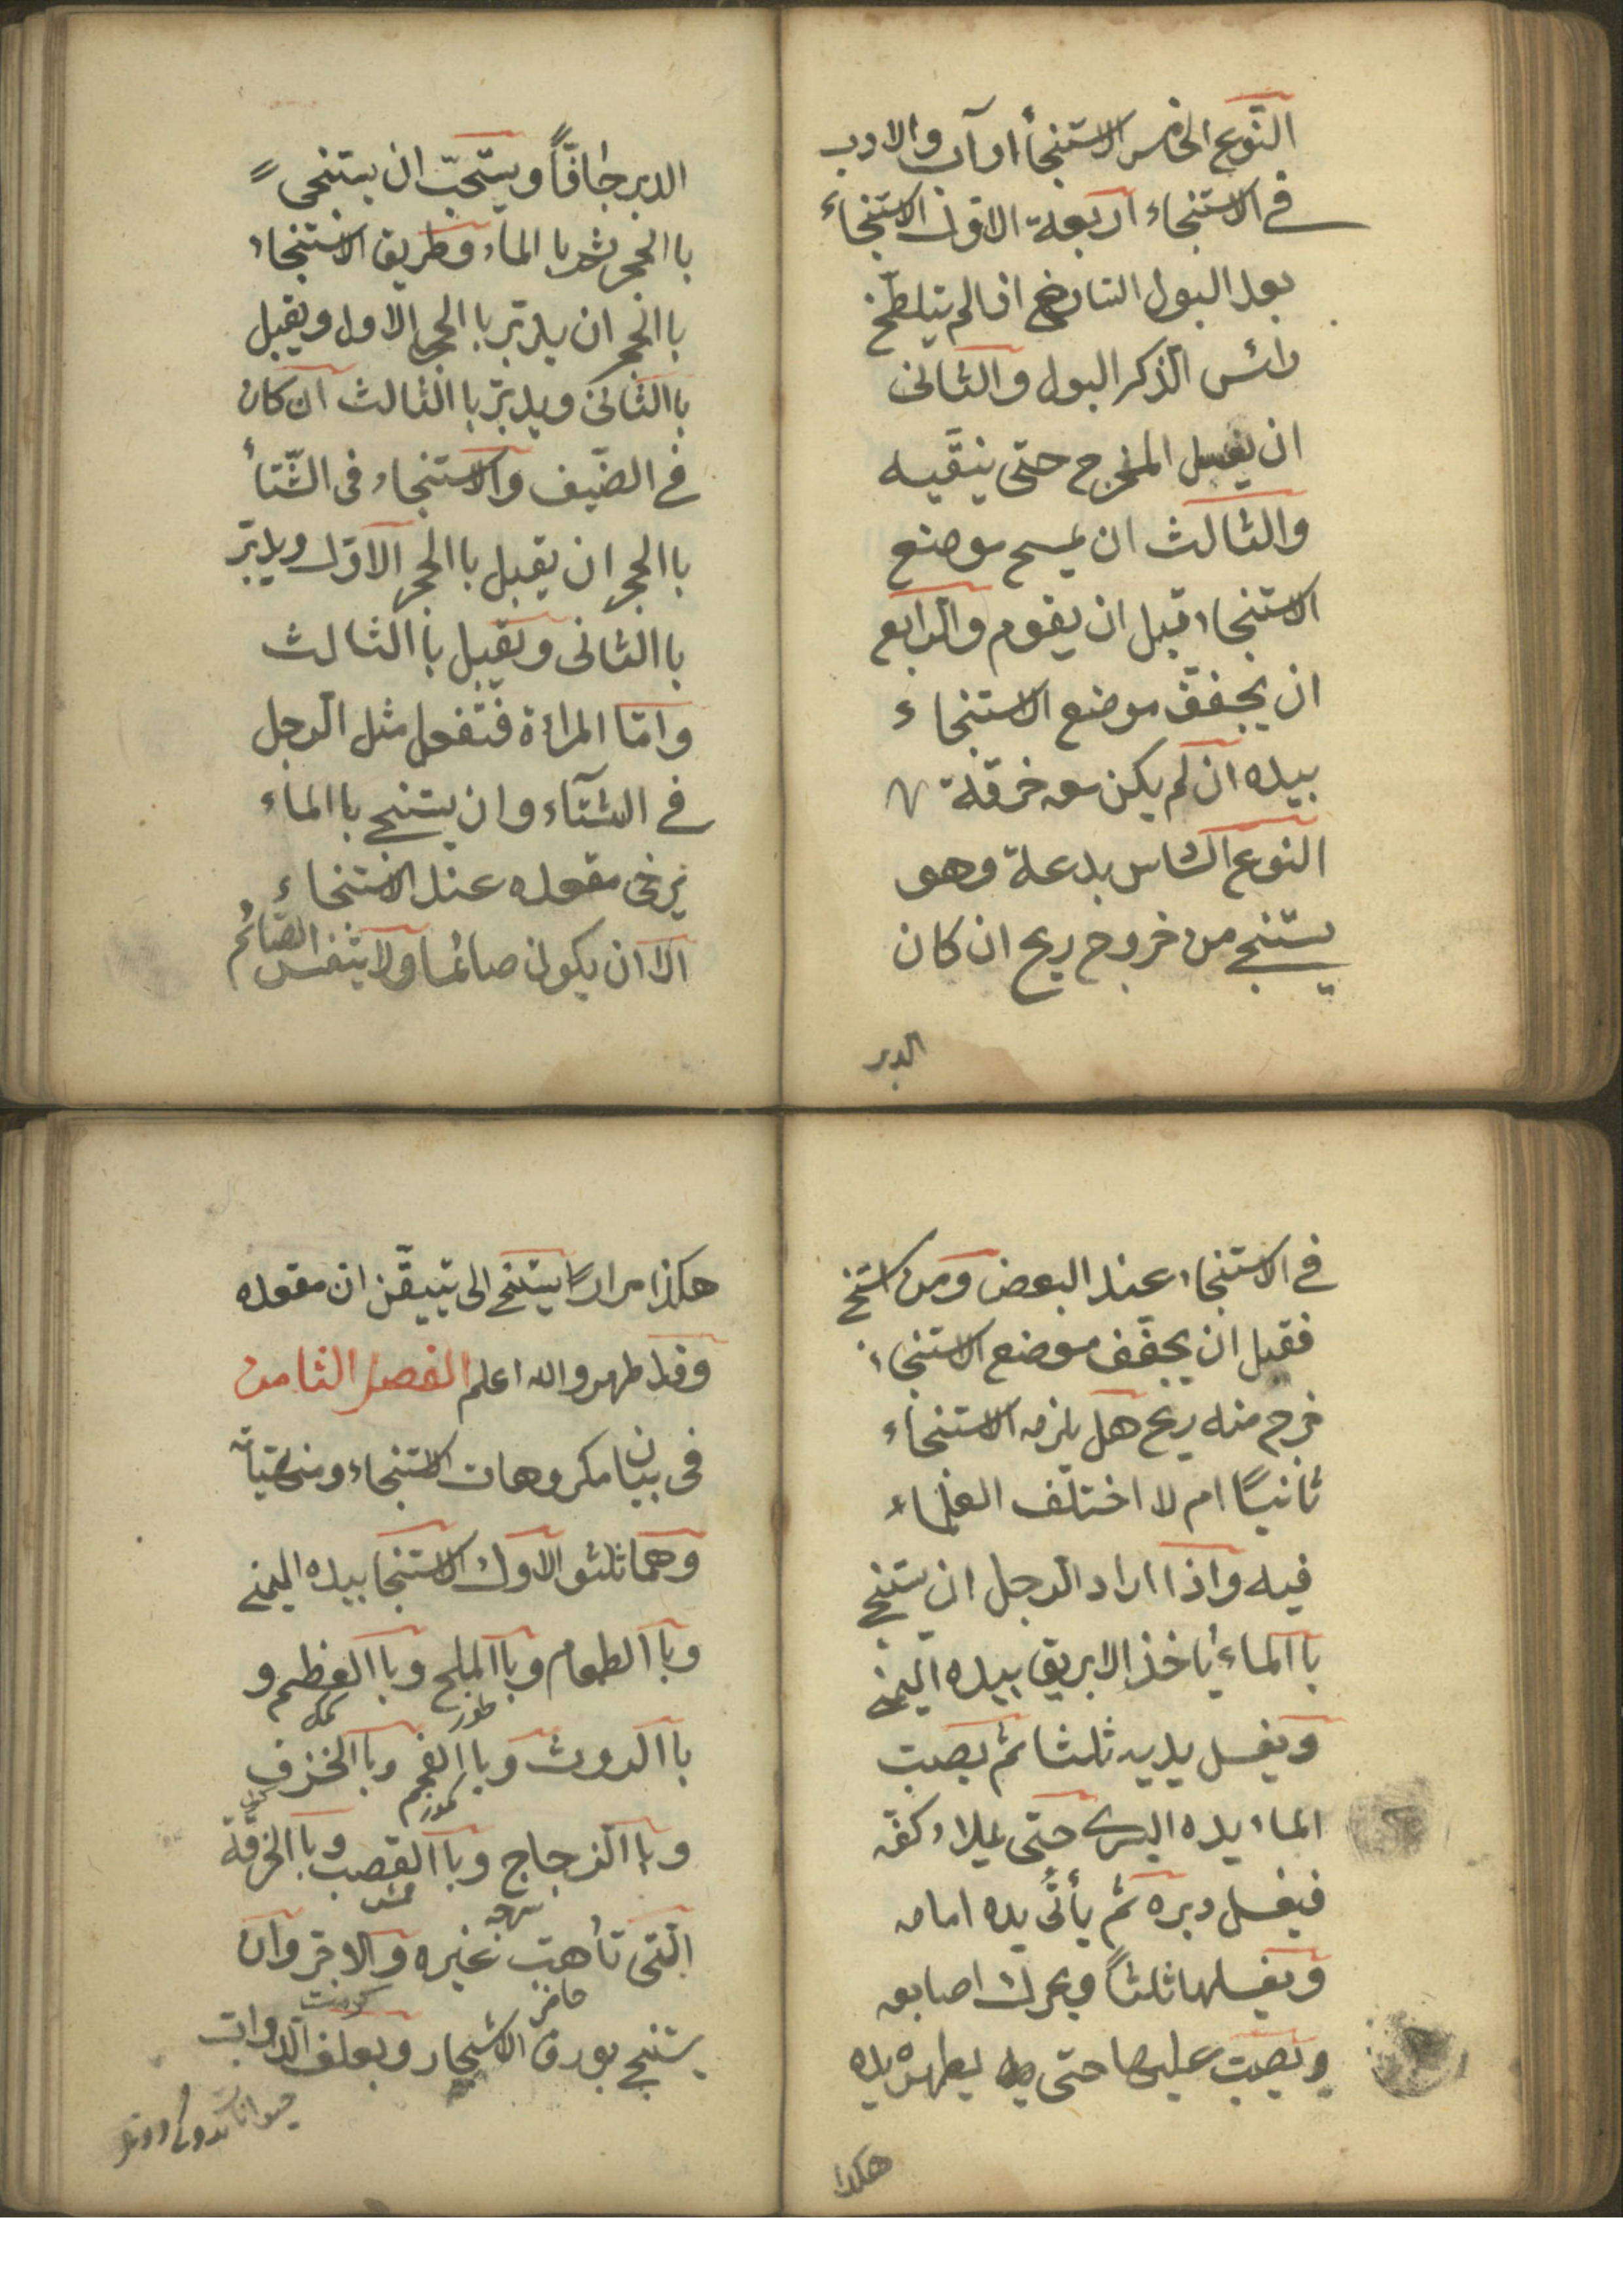 النّوع الخامس الاستنجأ اداب والادب
في الاستنجاء اربعة الاول الاستنجاء
بعد البول التارخ اذا لم يتلطّخ
رائس الذّكر البول والثانى
ان يغسل المخرج حتى ينقّيه
والثالث ان يمسح موضع
الاستنجاء قبل ان يقوم والرابع
ان يجفف موضع الاستنجاء
بيده ان لم يكن معه خرقة
النوع السادس بدعة وهو
يستنجي من خروج ريح ان كان
الدبر
الدبر جافّاً ويستحبّ ان يستنجى
باالحجر ثم باالماء وطريق الاستنجاء
باالحجر ان يدبّر باالحجر الاول ويقبل
باالثانى ويدبّر باالثالث ان كان
في الصّيف والاستنجاء فى الشّتأ
باالحجر ان يقبل باالحجر الاوّل ويدبّر
باالثانى ويقبل باالثالث
وامّا المراة فتفعل مثل الرجل
في الشتآء وان يستنجي باالماء
يرخى مقعده عند الاستنجاء
الا ان يكون صائما ولا يتنفس الصّائم
في الاستنجاء عند البعض ومن استنجي
فقبل ان يجفّف موضع الاستنجاء
خرج منه ريح هل يلزمه الاستنجاء
ثانيًا ام لا اختلف العلماء
فيه واذا اراد الرجل ان يستنجي
باالماء ياخذ الابريق بيده اليمنى
ويغسل يديه ثلثا ثم يصبّ
الماء يده اليسرى حتى يملاء كفّه
فيغسل دبره ثم يأتى يده امامه
ويغسلها ثلثاً ويحرك اصابعه
ويصبّ عليها حتى يطهر يده
هكذا
هكذا مرارًا يستنجي الى تيقّن ان مقعده
وقد طهر والله اعلم الفصل الثامن
فى بيان مكروهات الاستنجاء ومنهيّاته
وهما ثلثو الاول الاستنجا بيده اليمنى
وباالطعام وباالملح وباالعظم و
طوز كمك
باالروث وباالفحم وباالخزف
كمور
وباالزجاج وباالقصب وباالخرقة
سرچه قمش
الّتى تأهبت غيره والاجر وان
حاضر
يستنجي بورق الاشجار وبعلف الدواب
حيوانات